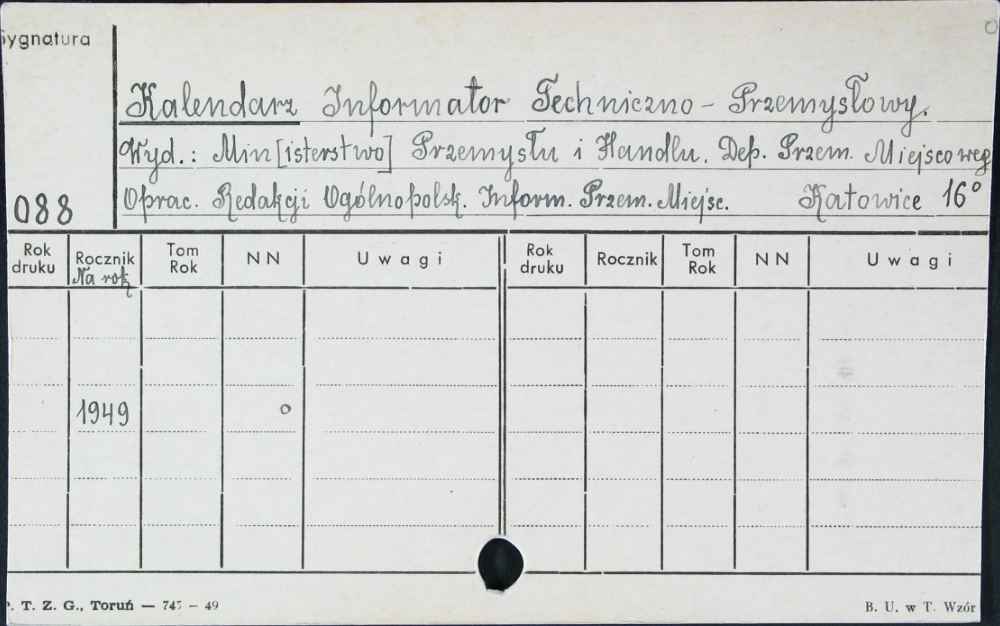 Sygnatura
Kalendarz Informator Techniczno - Przemysłowy.
Wyd.: Min[isterstwo] Przemysłu i Handlu. Dep. Przem. Miejscoweg
088 Oprac. Redakcji Ogólnopolsk. Inform. Przem. Miejsc. Katowice 16°
Rok druku Rocznik Tom Rok NN Uwagi Rok druku Rocznik Tom Rok NN Uwagi
Na rok
1949 o
P. T. Z. G., Toruń — 747 — 49 B. U. w T. Wzór